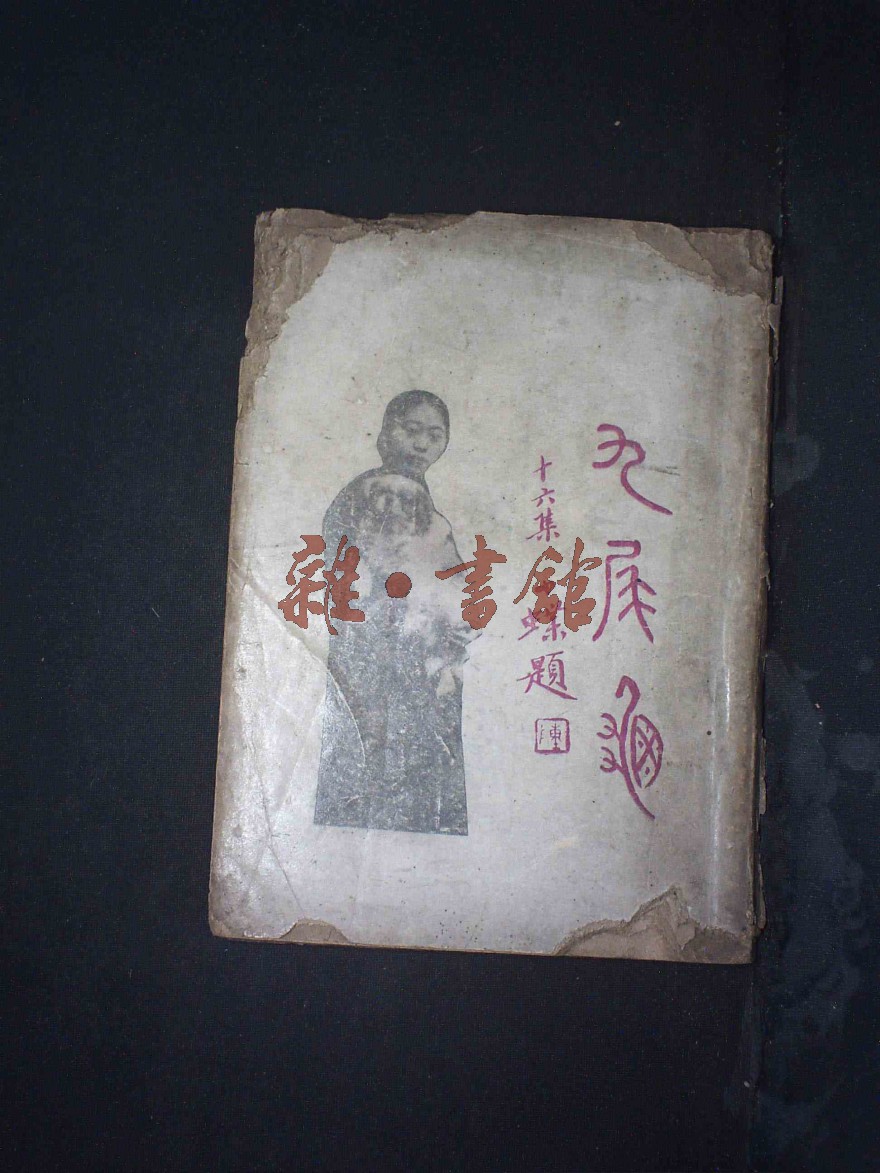 九尾龜
十六集
蝶題
陳
雜·書館